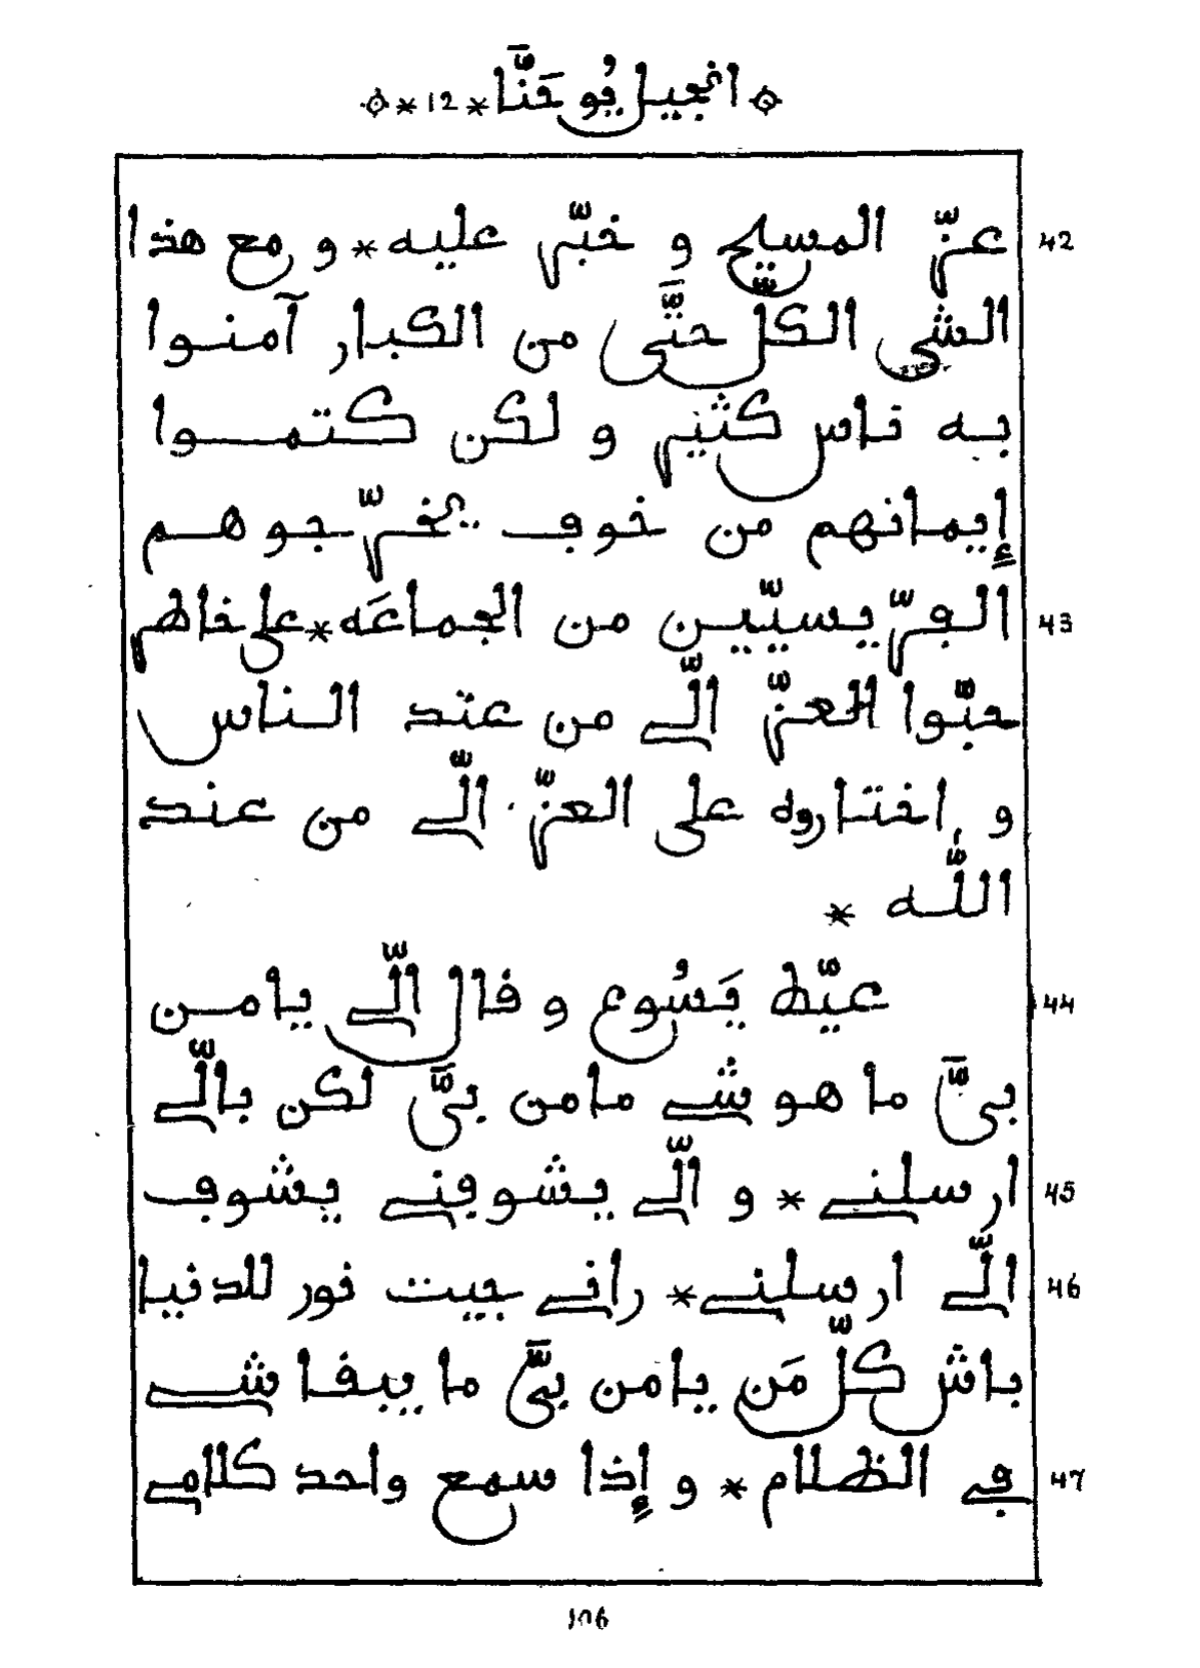 انجيل يُوحَنَّا * 12 *
42 عزّ المسيح و خبّر عليه * و مع هذا
الشي الكلّ حتَّى من الكبار آمنوا
به ناس كثير و لكن كتموا
إيمانهم من خوف يخرّجوهم
43 الفرّيسيّين من الجماعَه * على خاطر
حبّوا العزّ الّي من عند الناس
و اختاروه على العزّ الّي من عند
اللّه *
44 عيّط يَسُوع و قال الّي يامن
بيَّ ما هو شي مامن بيَّ لكن بالّي
45 ارسلني * و الّي يشوفني يشوف
46 الّي ارسلني * راني جيت نور للدنيا
باش كلّ مَن يامن بيَّ ما يبقا شي
47 في الظلام * و إذا سمع واحد كلامي
106